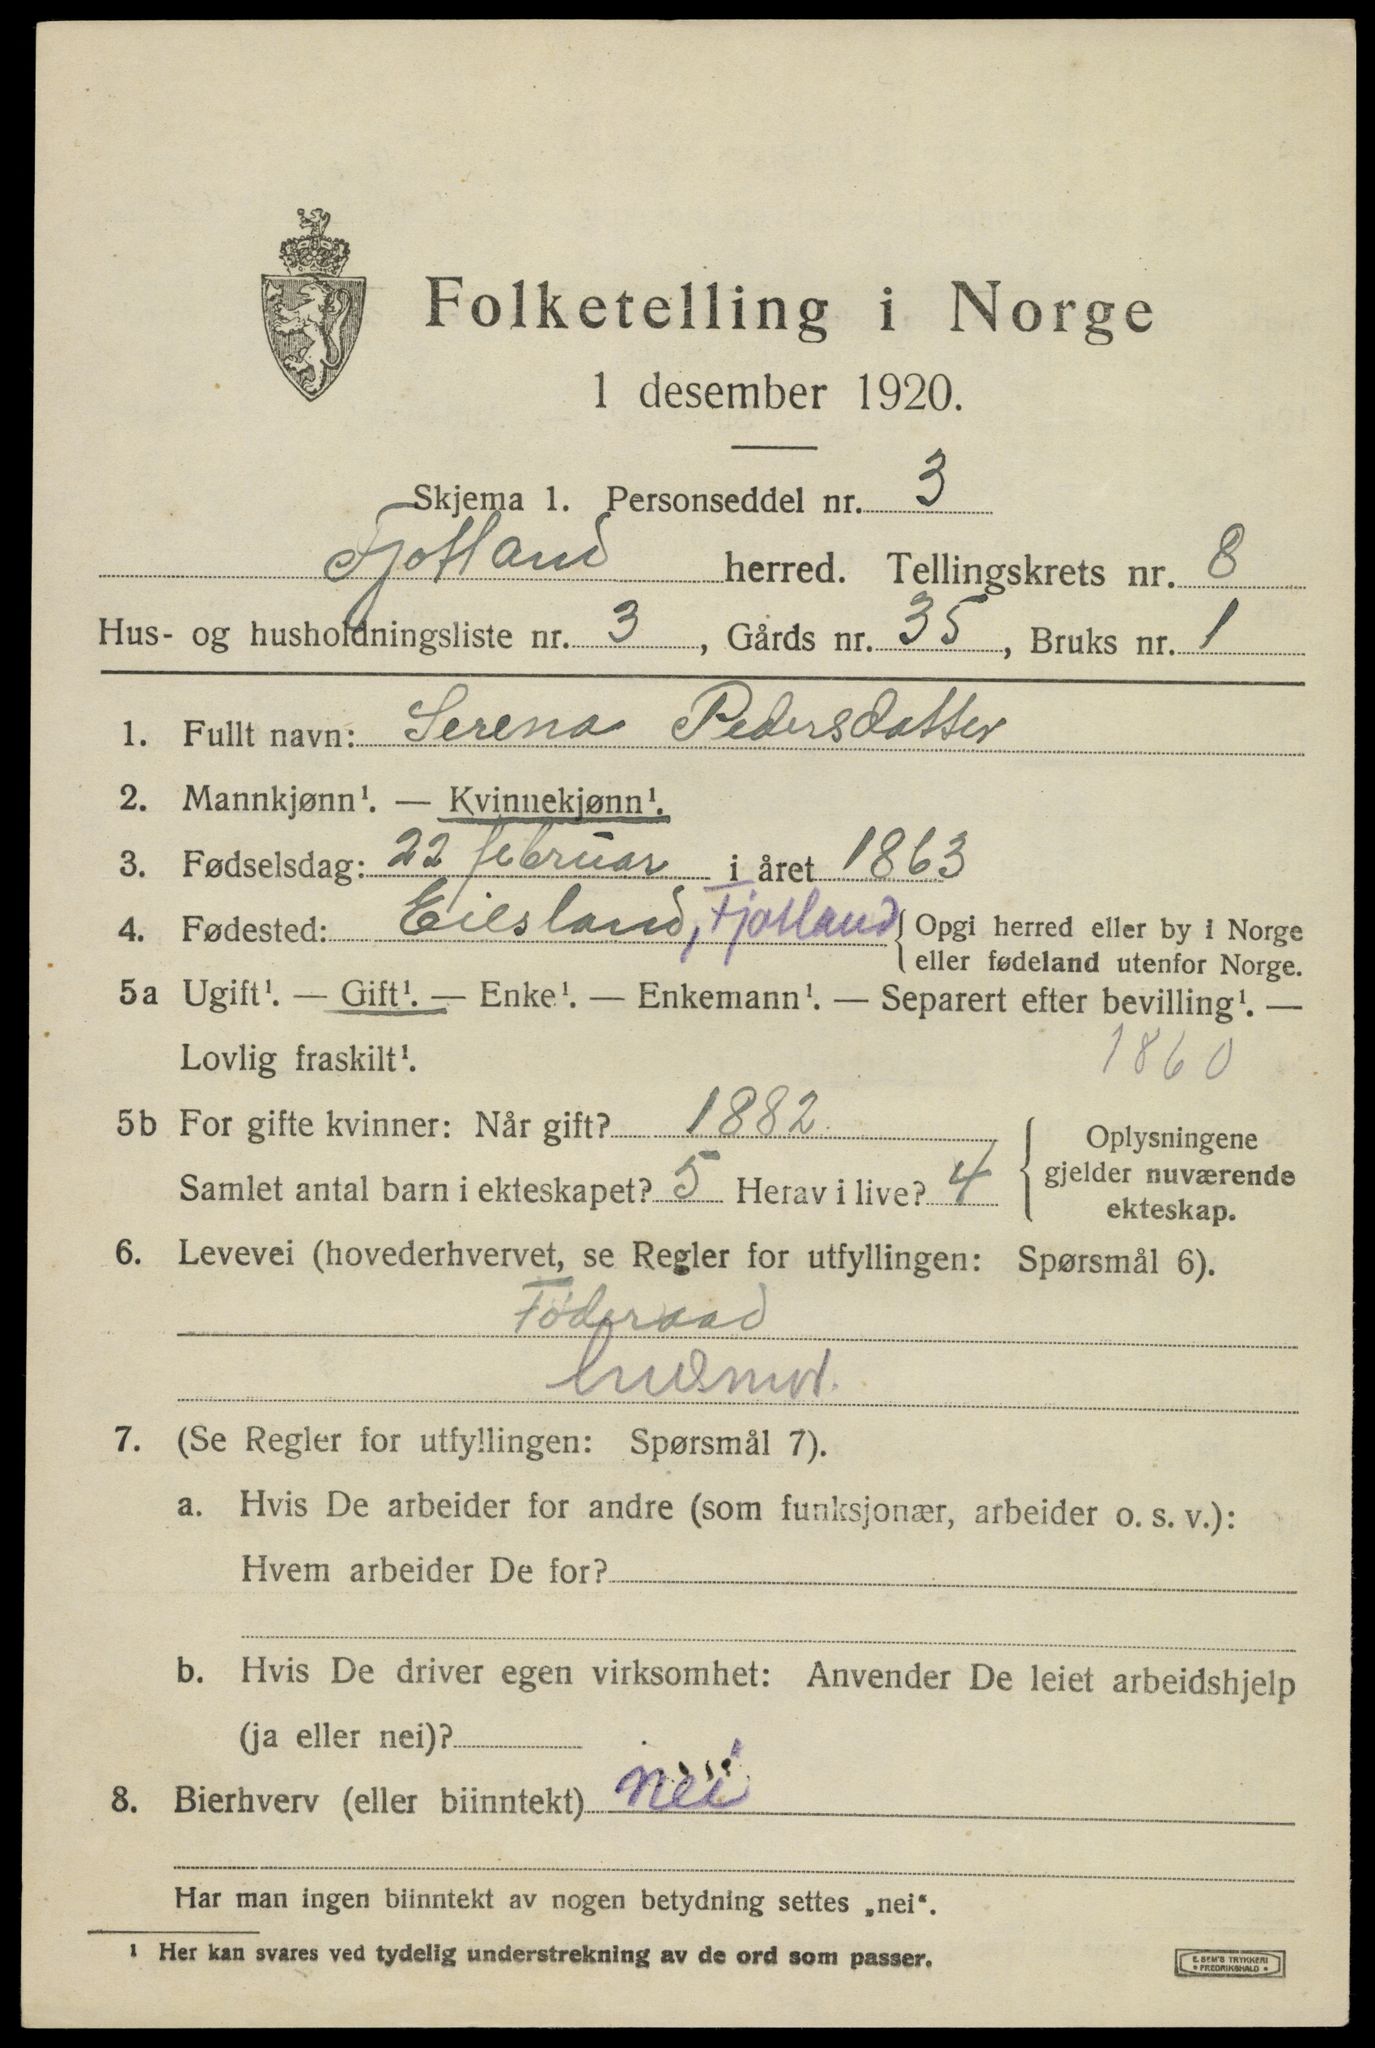 Folketelling i Norge
1 desember 1920.
Skjema 1. Personseddel nr. 3
Fjotland herred. Tellingskrets nr. 8
Hus- og husholdningsliste nr. 3, Gårds nr. 35, Bruks nr. 1
1. Fullt navn: Serena Pedersdatter
2. Mannkjønn¹. — Kvinnekjønn¹.
3. Fødselsdag: 22 februar i året 1863
4. Fødested: Eiesland, Fjotland { Opgi herred eller by i Norge
eller fødeland utenfor Norge.
5a Ugift¹. — Gift¹. — Enke¹. — Enkemann¹. — Separert efter bevilling¹. —
Lovlig fraskilt¹. 1860
5b For gifte kvinner: Når gift? 1882
Samlet antal barn i ekteskapet? 5 Herav i live? 4
{ Oplysningene
gjelder nuværende
ekteskap.
6. Levevei (hovederhvervet, se Regler for utfyllingen: Spørsmål 6).
Föderaad
husmor.
7. (Se Regler for utfyllingen: Spørsmål 7).
a. Hvis De arbeider for andre (som funksjonær, arbeider o. s. v.):
Hvem arbeider De for?
b. Hvis De driver egen virksomhet: Anvender De leiet arbeidshjelp
(ja eller nei)?
8. Bierhverv (eller biinntekt) nei
Har man ingen biinntekt av nogen betydning settes „nei“.
¹ Her kan svares ved tydelig understrekning av de ord som passer.
E. SEM'S TRYKKERI
• FREDRIKSHALD •